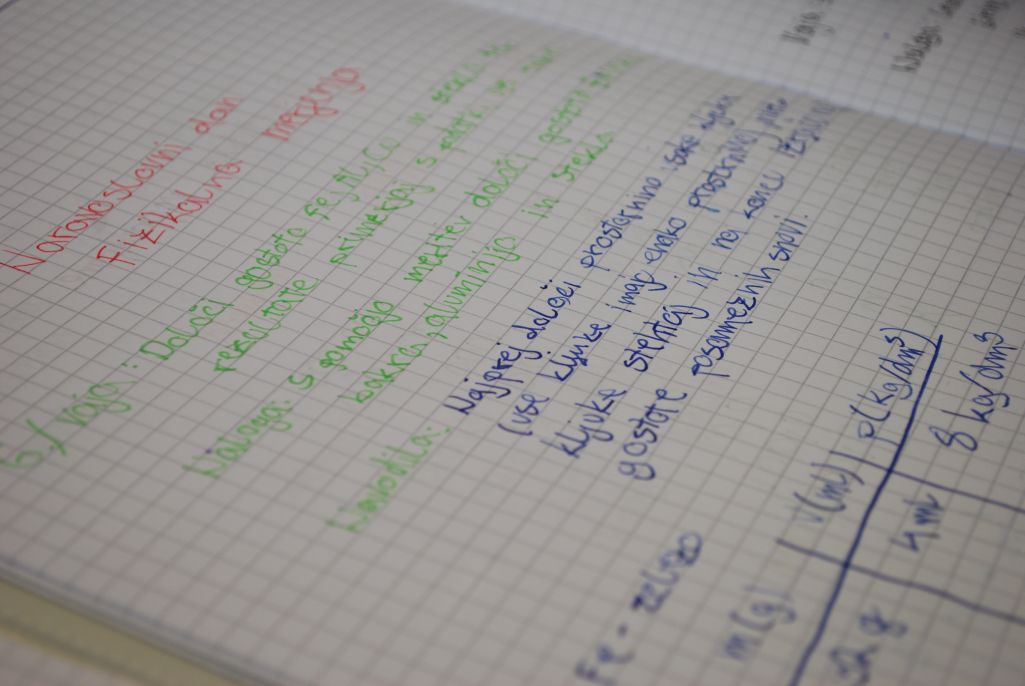 Naravoslovni dan
Fizikalna merjenja
6./ vaja: Določi gostoto Fe, Al, Cu in stekla
rezultate primerjaj s
Naloga: S pomočjo meritev določi gostoto
bakra, aluminija in stekla
Navodila: Najprej določi prostornino
(vse kljuke imajo enako prostornino)
kljuke stehtaj in na koncu
gostote posameznih snovi.
Fe - železo
m(g) | V(ml) | ρ(kg/dm³)
32 g 4 ml 8 kg/dm³
Naloga